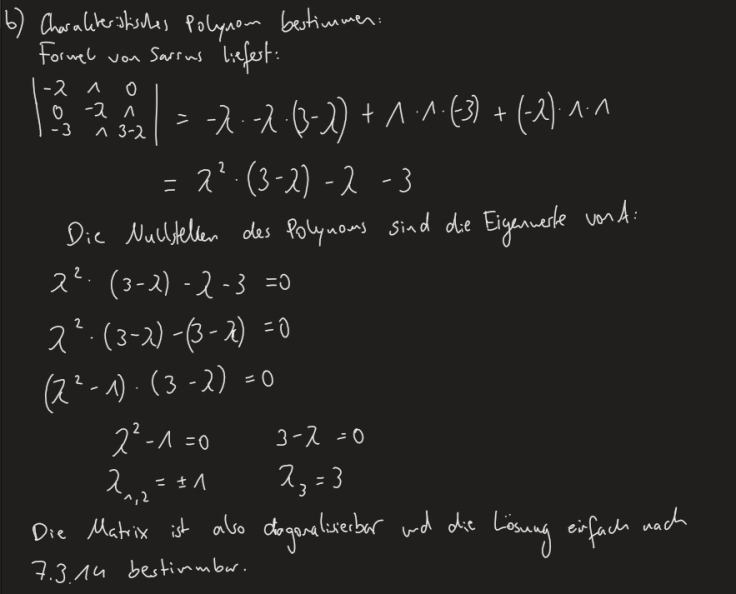 b) Charakteristisches Polynom bestimmen:
Formel von Sarrus liefert:
|-λ 1 0|
|0 -λ 1| = -λ · -λ · (3-λ) + 1 · 1 · (-3) + (-λ) · 1 · 1
|-3 1 3-λ|
= λ² · (3-λ) - λ - 3
Die Nullstellen des Polynoms sind die Eigenwerte von A:
λ² · (3-λ) - λ - 3 = 0
λ² · (3-λ) - (3-λ) = 0
(λ² - 1) · (3-λ) = 0
λ² - 1 = 0 3-λ = 0
λ₁,₂ = ± 1 λ₃ = 3
Die Matrix ist also diagonalisierbar und die Lösung einfach nach
7.3.14 bestimmbar.